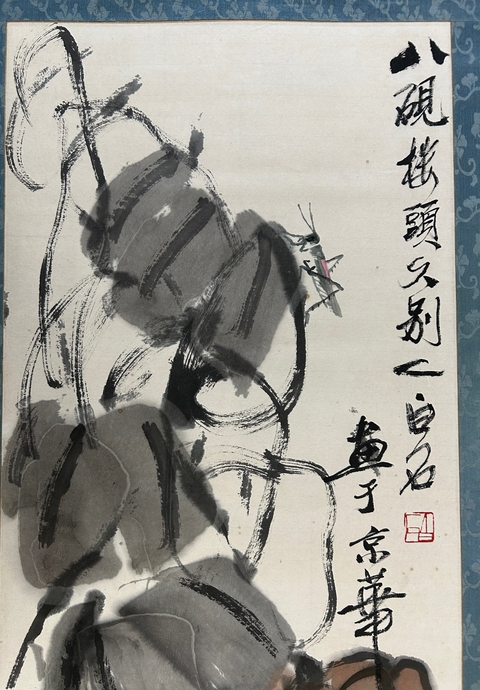 八硯樓頭久別人白石
畫于京華